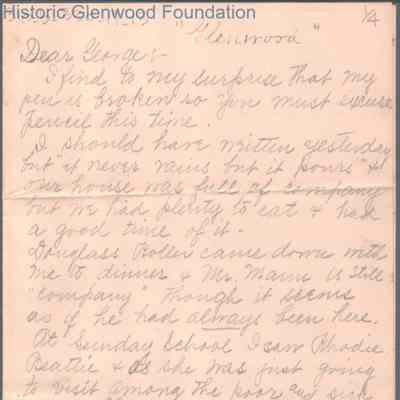 Historic Glenwood Foundation
1/4
"Glenwood"
Dear George:-
I find to my surprise that my
pen is broken so you must excuse
pencil this time.
I should have written yesterday
but "it never rains but it pours" &
our house was full of company
but we had plenty to eat & had
a good time of it.
Douglass Roller came down with
me to dinner & Mr. Mann is still
"company" though it seems
as if he had always been here.
At Sunday School I saw Rhodie
Beattie & as she was just going
to visit among the poor and sick